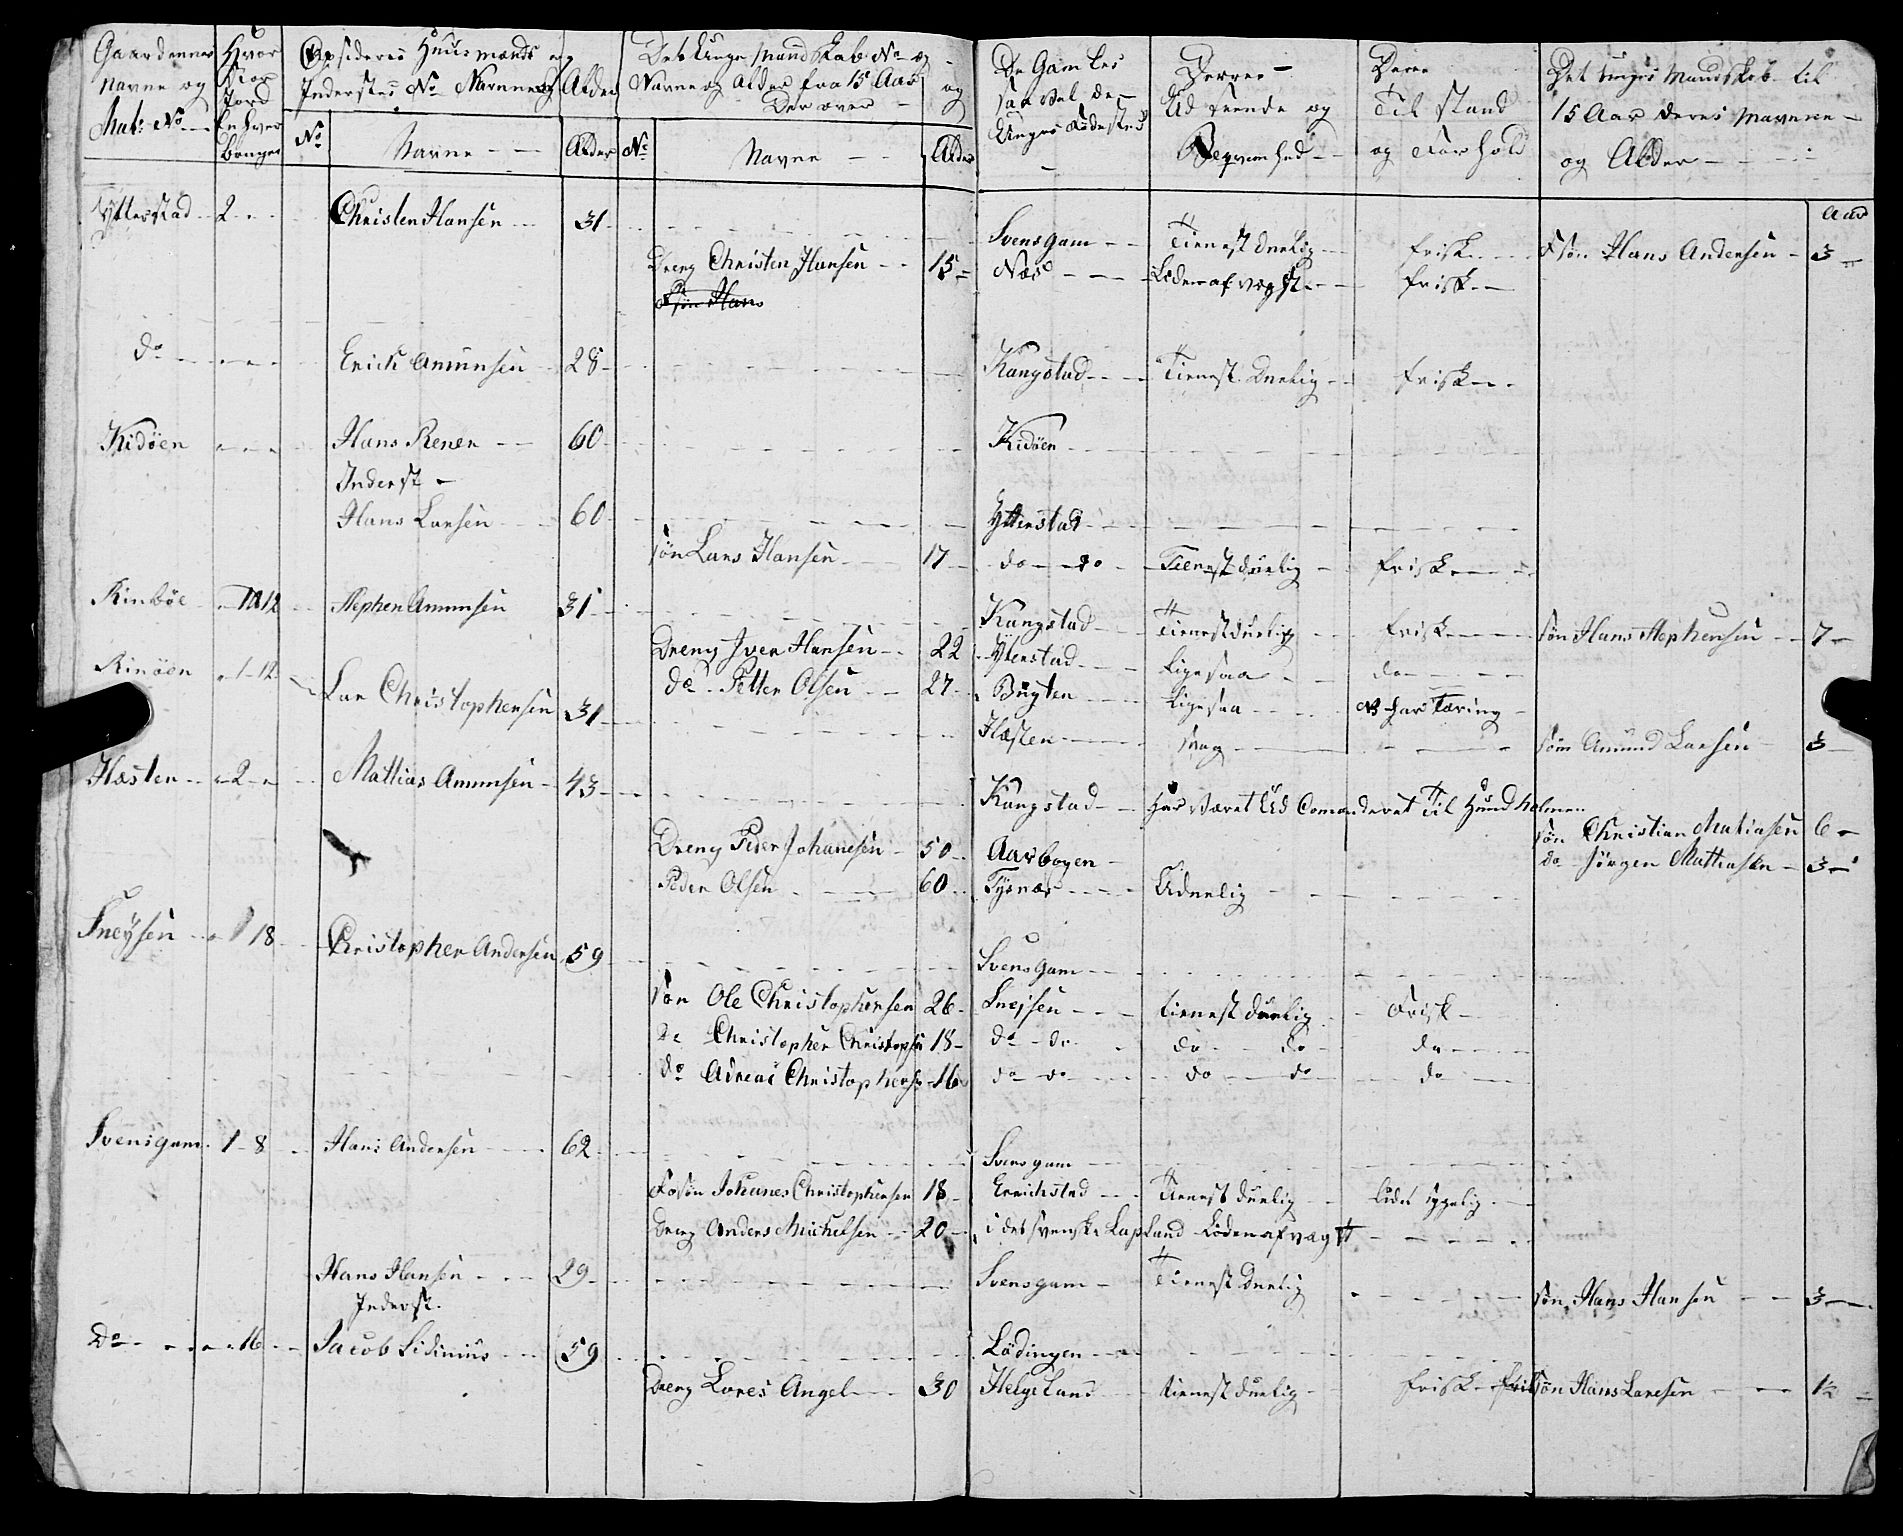 Gaardenes Navne og Mat: No
Hvor Stor Jord Enhver bruger
Opsideres Huusmænds og Inderstes No Navne og Alder
No Navne Alder
Det Unge Mandskab No og Navne og Alder fra 15 Aar og Derover
No Navne Alder
De Gamles saavel de Unges Fødested
Derres Udseende og Beqvemhed
Deres Tilstand og Forhold
Det unges Mandskab til 15 Aar deres Navnne og Alder
Aar
Ytterstad 2 Christen Hansen 31 Svensgam Tienestduelig frisk Søn Hans Andersen 3
Dreng Christen Hansen 15 Næs Liden af vægst frisk
Søn Hans
do Erich Amunsen 28 Kangstad Tienest Duelig frisk
Kidöen Hans Rener 60 Kidöen
Inderst
Hans Larsen 60 Ytterstad
søn Lars Hansen 17 do do Tienestduelig frisk
Rinböe 12 Stephen Amunsen 31 Kangstad Tienestduelig frisk søn Hans Stephensen 7
Dreng Iver Hansen 22 Ytterstad Ligesaa do
Rinöen 1 12 Lar Christophersen 31
do Petter Olsen 27 Bugten Ligesaa NB har Tæring
Hæsten svag søn Amund Larsen 3
Hæsten 2 Mattias Amunsen 43 Kangstad Har været Ud Comanderet Til Hundholmen
søn Christian Matiasen 6
Dreng Peder Johanesen 50 Aarbogen do Jörgen Mattiasen 3
Peder Olsen 60 Tysnæs Uduelig
Sneysen 1 18 Christopher Andersen 59 Svensgam
søn Ole Christophersen 26 Snejsen tienestduelig Frisk
do Christopher Christophsen 18 do do do do do
do Adreas Christophersen 16 do do do do do
Svensgam 1 8 Hans Andersen 62 Svensgam
Fosøn Johanes Christophersen 18 Errichstad Tienestduelig Lidet sygelig
Dreng Anders Michelsen 20 i det svenske LapLand Liden af vægst
Hans Hansen 29 Svensgam Tienest Duelig
Inderst. søn Hans Hansen 3
Do 16 Jacob Sidinius 59 Lödingen
Dreng Lores Angel 30 Helgeland tienestduelig frisk søn Hans Laresen 1/2